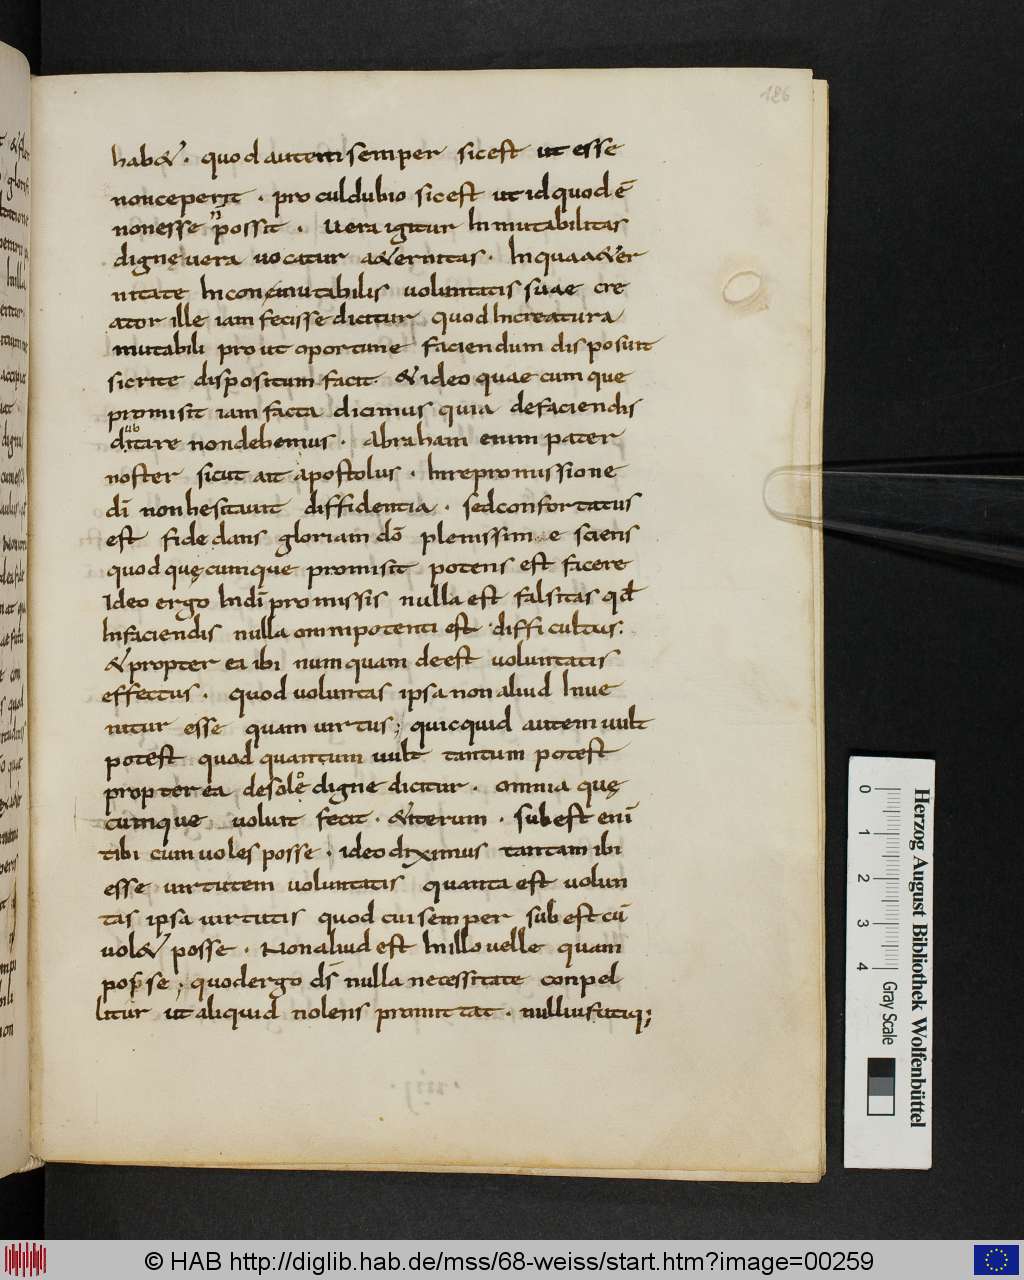 126
hab&. quod autem semper sic est ut esse
nonceperit. pro culdubio sic est ut id quod ē
nonesse n possit. Vera igitur Inmutabilitas
dignę uera uocatur a&ernitas. Inqua a&er
nitate Inconmutabilis voluntatis suae cre
ator ille iam fecisse dicitur quod Increatura
mutabili prout oportune faciendum disposuit
sicrite dispositum facit. & ideo quaecumque
promisit iam facta dicimus quia defaciendis
dubitare nondebemus. Abraham enim pater
noster sicut ait apostolus. Inrepromissione
dī nonhesitauit diffidentia. sedconfortatus
est fide dans gloriam dō plenissime sciens
quod quęcumque promisit potens est facere
Ideo ergo Indī promissis nulla est falsitas qđ
Infaciendis nulla omnipotenti est difficultus.
& propter ea ibi numquam deest voluntatis
effectus. quod voluntas ipsa non aliud Inue
nitur esse quam uirtus; quicquid autem uult
potest quod quantum uult tantum potest
propterea desolo digne dicitur. omnia quę
cumque voluit fecit. &iterum. subest enī
tibi cum uoles posse. ideo diximus tantam ibi
esse uirtutem voluntatis quanta est uolun
tas ipsa uirtutis quod cui semper subest cū
uol& posse. Non aliud est Inillo uelle quam
posse; quod ergo ds̄ nulla necessitate conpel
litur ut aliquid nolens promittat. nulliusutiq;
0 1 2 3 4
Gray Scale
Herzog August Bibliothek Wolfenbüttel
© HAB http://diglib.hab.de/mss/68-weiss/start.htm?image=00259